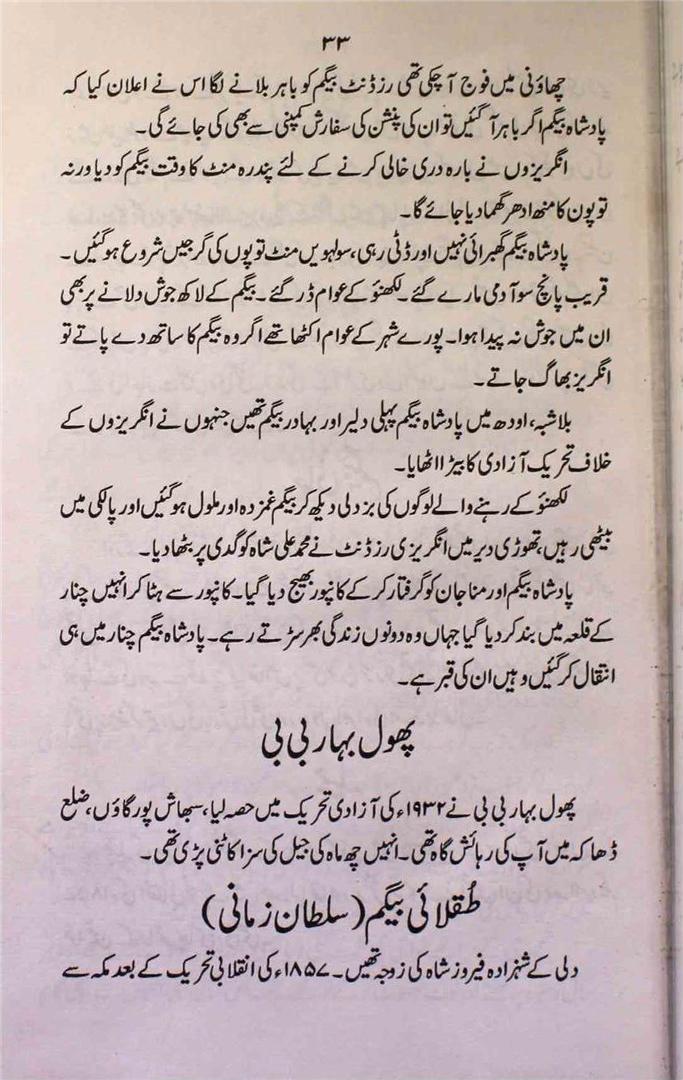 ۳۳
چھاؤنی میں فوج آ چکی تھی رزڈنٹ بیگم کو باہر بلانے لگا اس نے اعلان کیا کہ
پادشاہ بیگم اگر باہر آ گئیں تو ان کی پنشن کی سفارش کمپنی سے بھی کی جائے گی۔
انگریزوں نے بارہ دری خالی کرنے کے لئے پندرہ منٹ کا وقت بیگم کو دیا ورنہ
توپوں کا منھ ادھر گھما دیا جائے گا۔
پادشاہ بیگم گھبرائی نہیں اور ڈٹی رہی، سولہویں منٹ توپوں کی گرجیں شروع ہو گئیں۔
قریب پانچ سو آدمی مارے گئے۔ لکھنؤ کے عوام ڈر گئے۔ بیگم کے لاکھ جوش دلانے پر بھی
ان میں جوش نہ پیدا ہوا۔ پورے شہر کے عوام اکٹھا تھے اگر وہ بیگم کا ساتھ دے پاتے تو
انگریز بھاگ جاتے۔
بلاشبہ، اودھ میں پادشاہ بیگم پہلی دلیر اور بہادر بیگم تھیں جنہوں نے انگریزوں کے
خلاف تحریک آزادی کا بیڑا اٹھایا۔
لکھنؤ کے رہنے والے لوگوں کی بزدلی دیکھ کر بیگم غمزدہ اور ملول ہو گئیں اور پالکی میں
بیٹھی رہیں، تھوڑی دیر میں انگریزی رزڈنٹ نے محمد علی شاہ کو گدی پر بٹھا دیا۔
پادشاہ بیگم اور مناجان کو گرفتار کر کے کانپور بھیج دیا گیا۔ کانپور سے ہٹا کر انہیں چنار
کے قلعہ میں بند کر دیا گیا جہاں وہ دونوں زندگی بھر سڑتے رہے۔ پادشاہ بیگم چنار میں ہی
انتقال کر گئیں وہیں ان کی قبر ہے۔
پھول بہار بی بی
پھول بہار بی بی نے ۱۹۳۲ء کی آزادی تحریک میں حصہ لیا، سبھاش پور گاؤں، ضلع
ڈھاکہ میں آپ کی رہائش گاہ تھی۔ انہیں چھ ماہ کی جیل کی سزا کاٹنی پڑی تھی۔
طُقلائی بیگم (سلطان زمانی)
دلی کے شہزادہ فیروز شاہ کی زوجہ تھیں۔ ۱۸۵۷ء کی انقلابی تحریک کے بعد مکہ سے